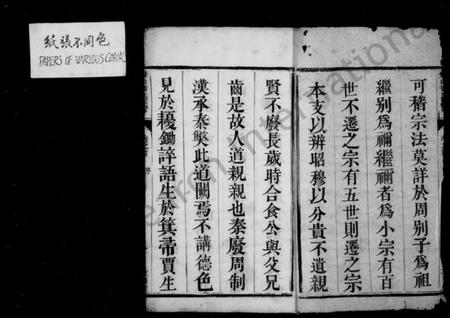 紙張不同色
PAPERS OF VARIOUS COLORS
可稽宗法莫詳於周別子為祖
繼別為禰繼禰者為小宗有百
世不遷之宗有五世則遷之宗
本支以辨昭穆以分貴不遺親
賢不廢長歲時合食公與父兄
齒是故人道親親也秦廢周制
漢承秦獘此道闕焉不講德色
見於耰鋤誶語生於箕帚賈生